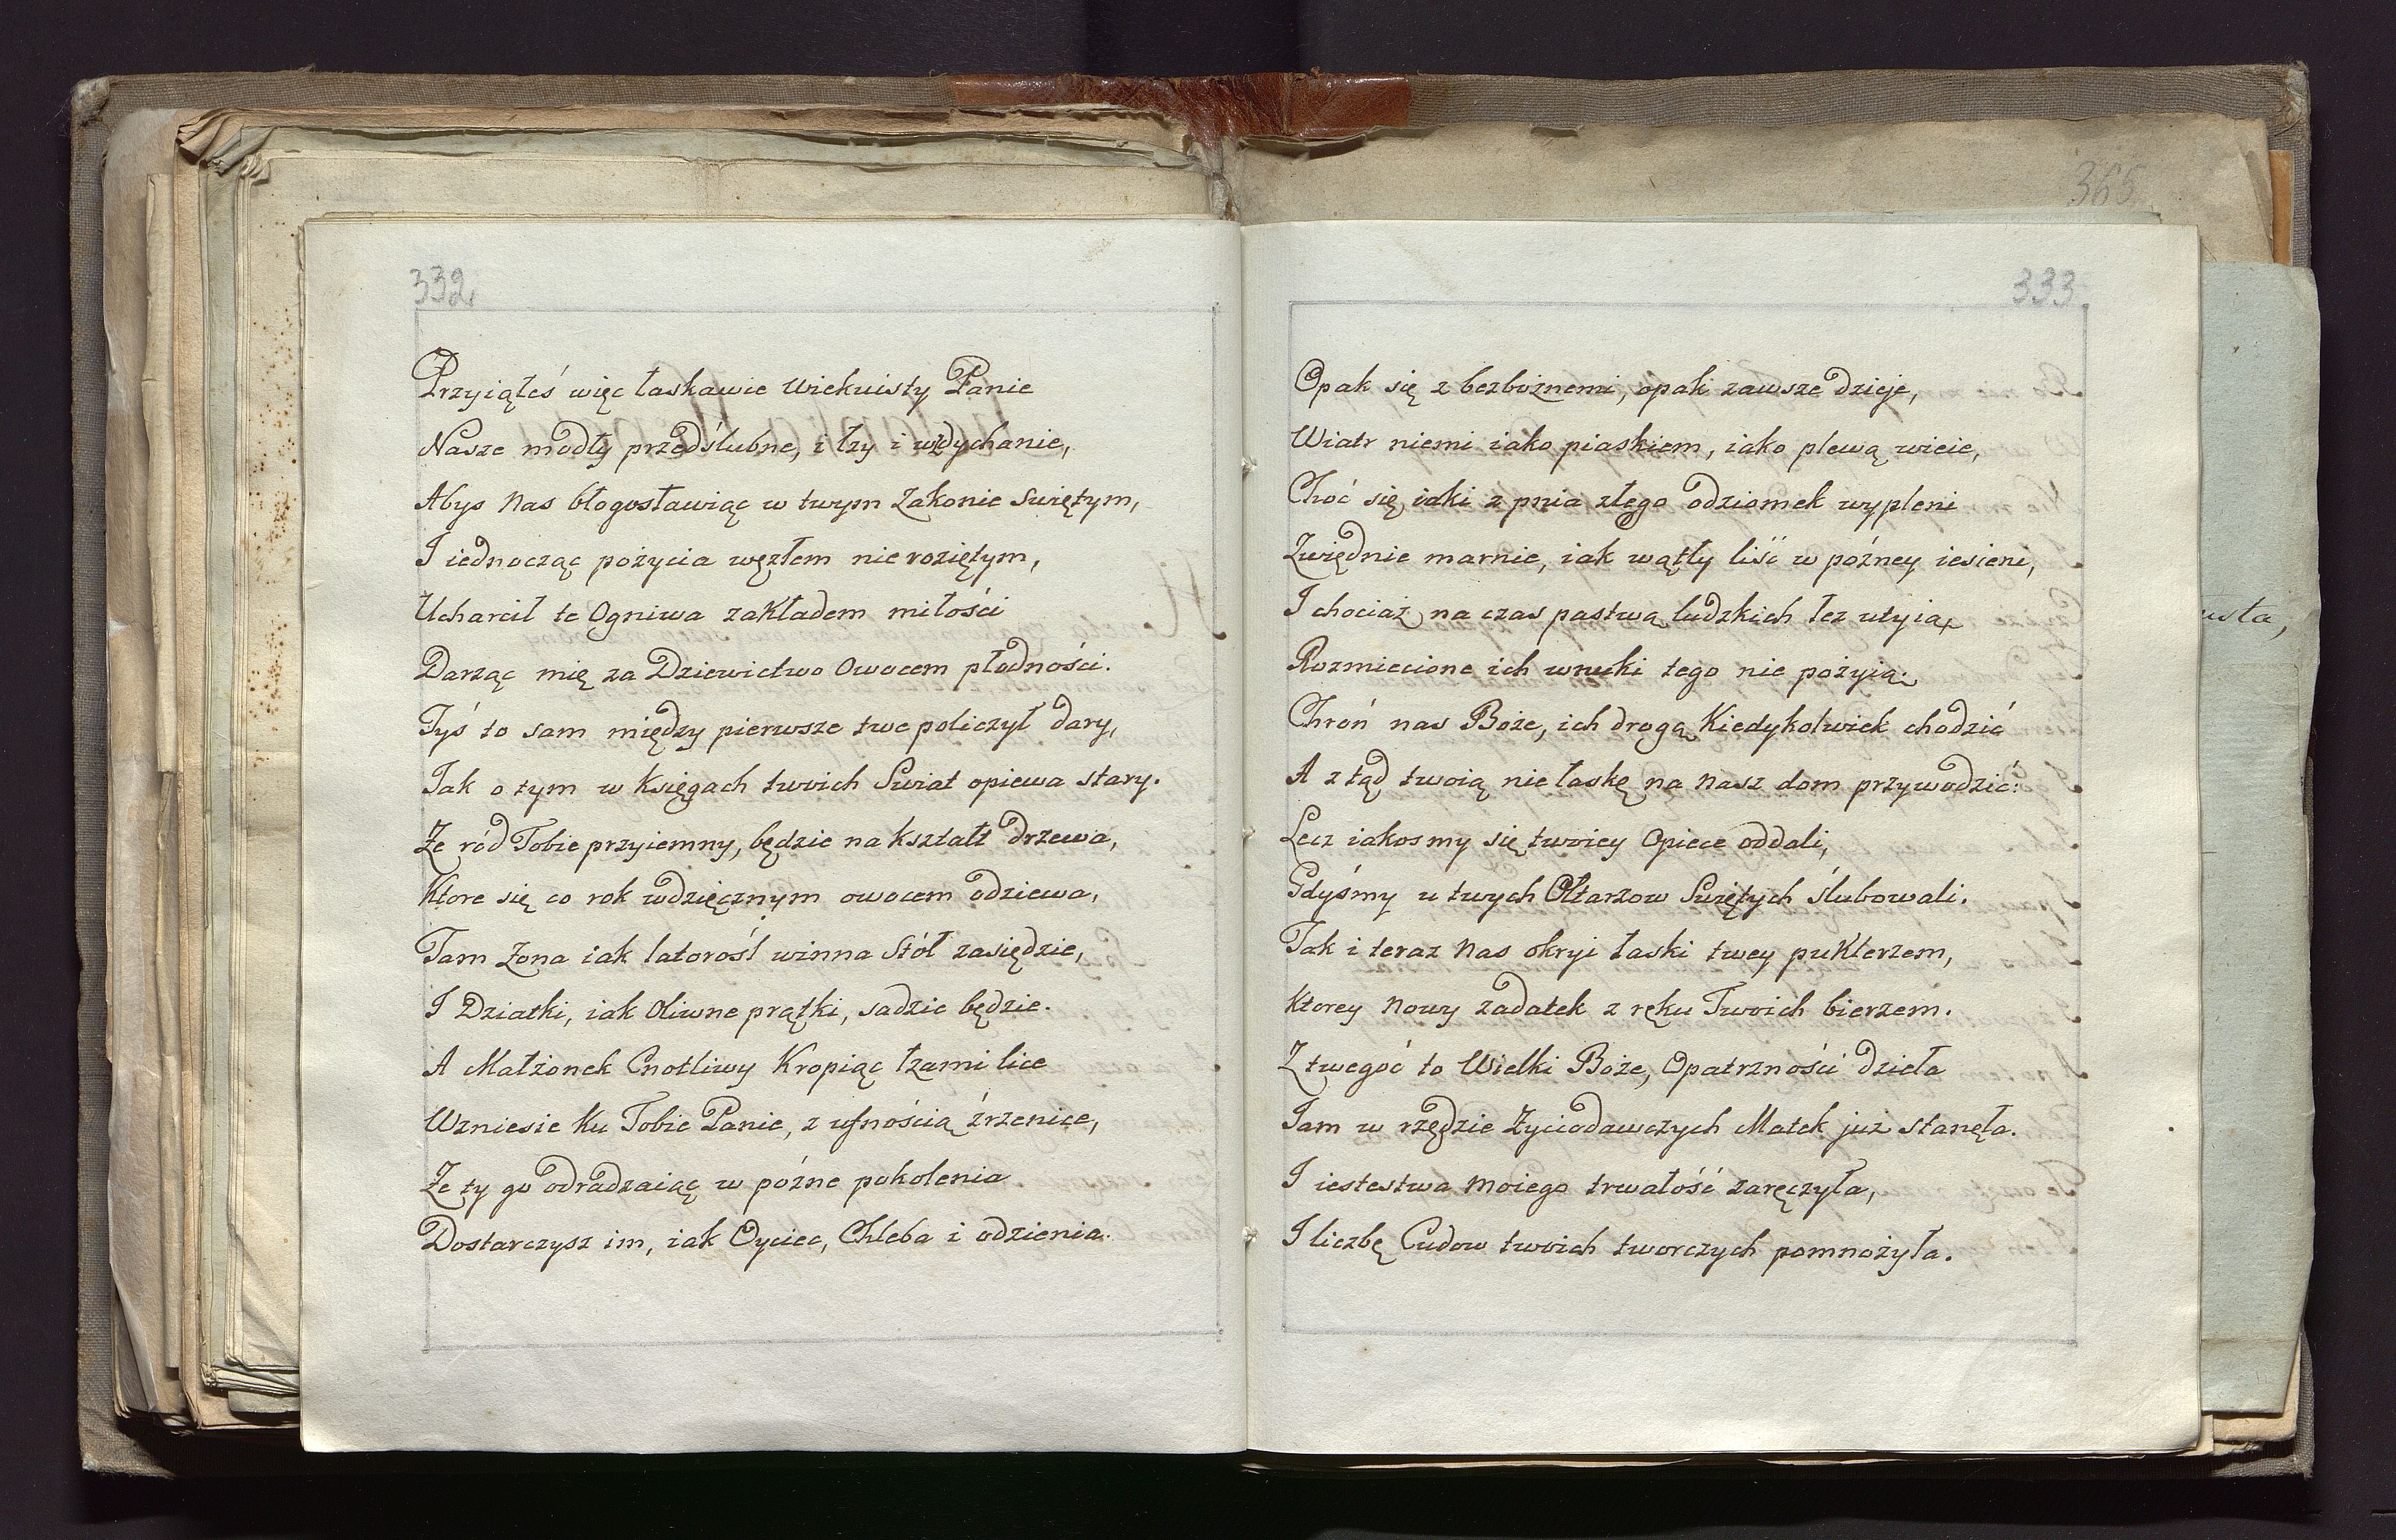 332
Przyiąłeś więc łaskawie Wiekuisty Panie
Nasze modły przedślubne, i łzy i wzdychanie,
Abys Nas błogosławiąc w twym Zakonie Swiętym,
I iednocząc pożycia węzłem nieroziętym,
Uharcił te Ogniwa zakładem miłości
Darząc mię za Dziewictwo Owocem płodności.
Tyś to sam między pierwsze twe policzył dary,
Jak o tym w Księgach twoich Swiat opiewa stary.
Ze ród Tobie przyiemny, będzie na kształt drzewa,
Ktore się co rok wdzięcznym owocem odziewa,
Tam Zona iak latorośl winna Stół zasiędzie,
I Dziatki, iak Oliwne prątki, sadzić będzie.
A Małżonek Cnotliwy Kropiąc łzami lice
Wzniesie Ku Tobie Panie, z ufnością źrzenice,
Ze ty go odradzaiąc w poźne pokolenia
Dostarczysz im, iak Oyciec, Chleba i odzienia.
365
333
Opak się z bezbożnemi, opak zawsze dzieje,
Wiatr niemi iako piaskiem, iako plewą wieie,
Choć się iaki z pnia złego odziomek wypleni
Zwiędnie marnie, iak wątły liść w poźney iesieni,
I chociaż na czas pastwą ludzkich łez utyią,
Rozmiecione ich wnuki tego nie pożyią.
Chroń nas Boże, ich drogą Kiedykolwiek chodzić
A z tąd twoią nie łaskę na Nasz dom przywodzić:
Lecz iakosmy się twoiey Opiece oddali,
Gdyśmy u twych Ołtarzow Swiętych ślubowali.
Tak i teraz Nas okryi łaski twey puklerzem,
Ktorey Nowy zadatek z ręku Twoich bierzem.
Z twegoć to Wielki Boże, Opatrzności dzieła
Jam w rzędzie Zyciodawczych Matek już stanęła.
I iestestwa Moiego trwałość zaręczyła,
I liczbę Cudow twoich tworczych pomnożyła.